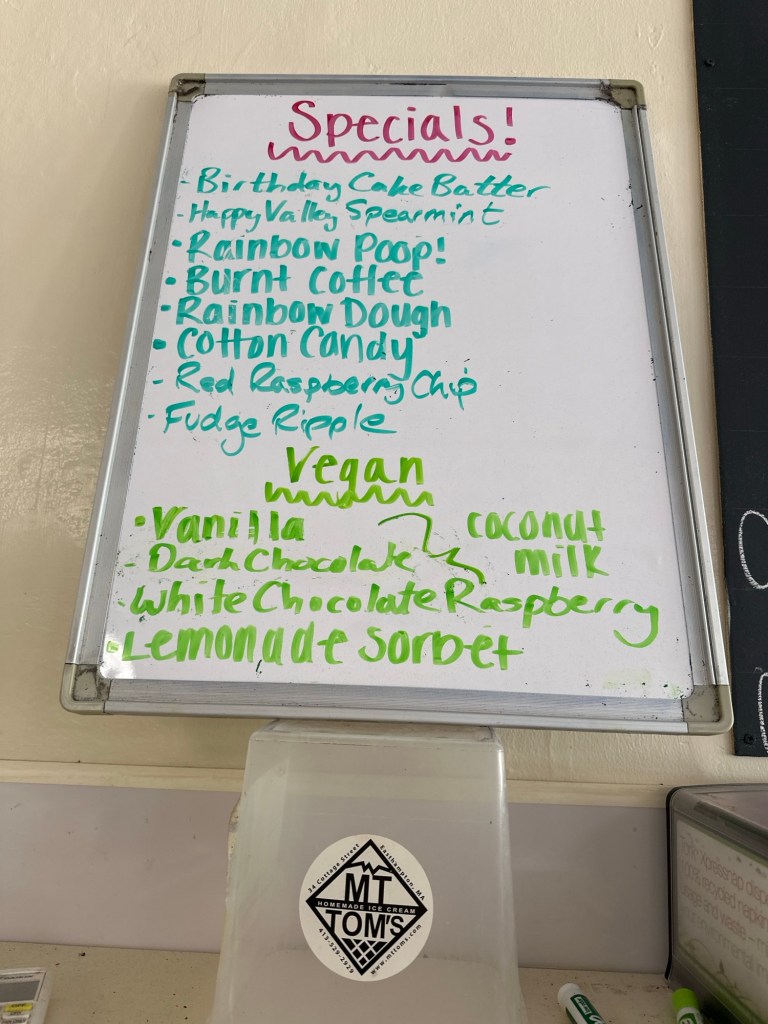 Specials!
- Birthday Cake Batter
- Happy Valley Spearmint
• Rainbow Poop!
• Burnt Coffee
• Rainbow Dough
• Cotton Candy
- Red Raspberry Chip
- Fudge Ripple
Vegan
• Vanilla
- Dark Chocolate
coconut
milk
- White Chocolate Raspberry
• Lemonade Sorbet
34 Cottage Street
Easthampton, MA
MT
HOMEMADE ICE CREAM
TOM'S
413-529-2929
www.mttoms.com
Xpressnap
100% recycled